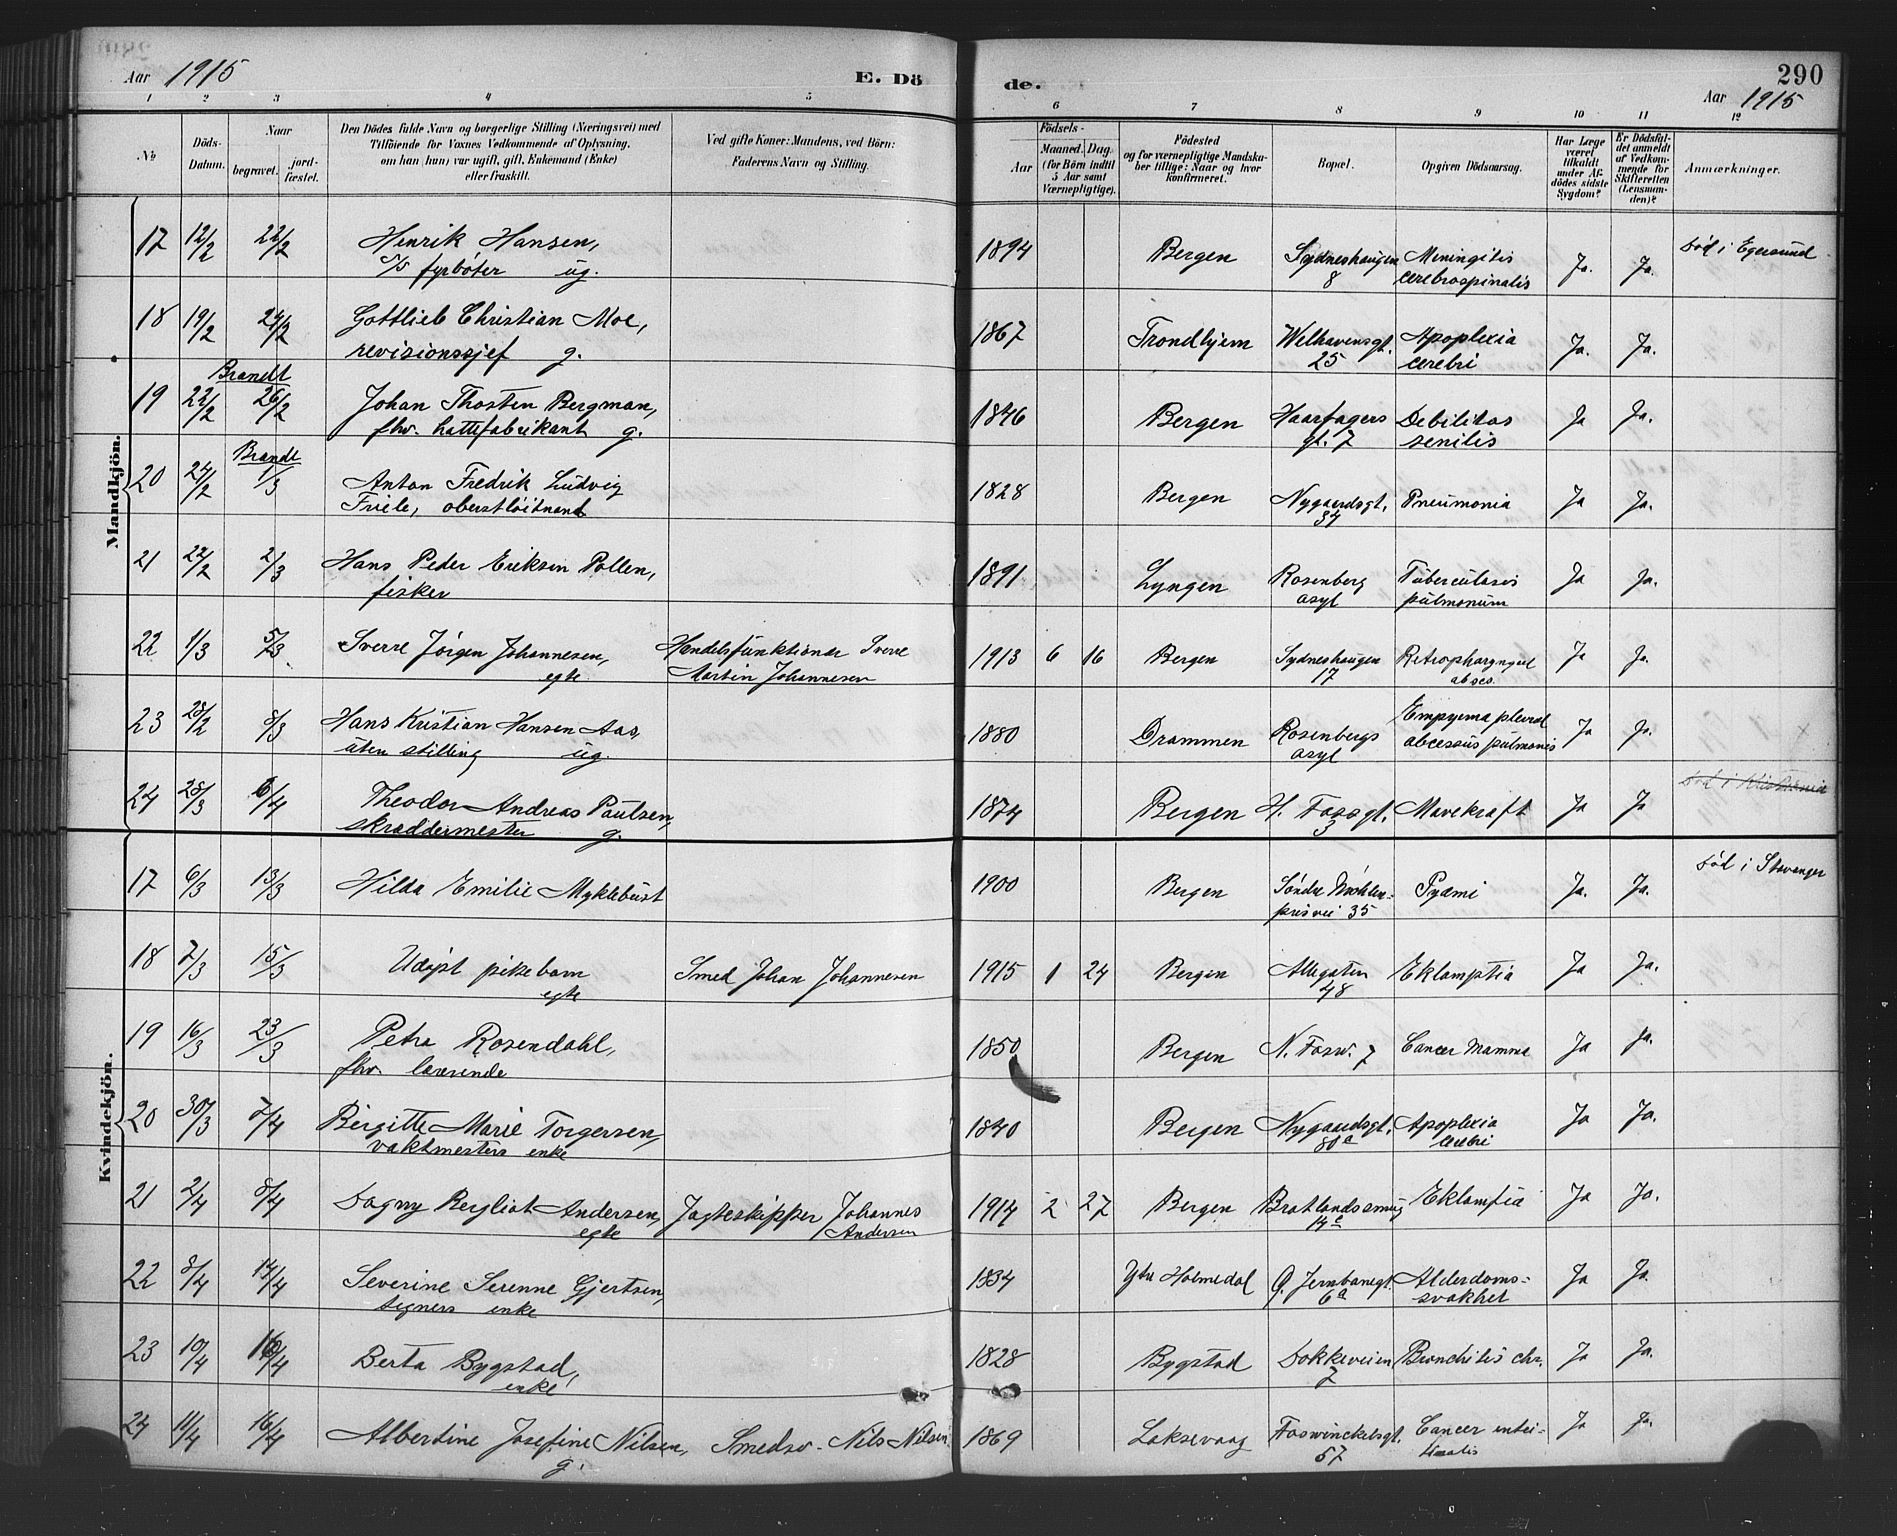 Aar 1915
E. Dö
de.
290
Aar 1915
1 2 3 4 5 6 7 8 9 10 11 12
No
Döds-Datum.
Naar
begravet.
jord-fæstet.
Den Dödes fulde Navn og borgerlige Stilling (Næringsvei) med
Tilföiende for Voxnes Vedkommende af Oplysning,
om han (hun) var ugift, gift, Enkemand (Enke)
eller fraskilt.
Ved gifte Koner: Mandens, ved Börn:
Faderens Navn og Stilling.
Födsels-
Aar
Maaned. Dag
(for Börn indtil
5 Aar samt
Værnepligtige).
Födested
og for værnepligtige Mandska-
ber tillige: Naar og hvor
konfirmeret.
Bopæl.
Opgiven Dödsaarsag.
Har Læge
været
tilkaldt
under Af-
dödes sidste
Sygdom?
Er Dödsfal-
det anmeldt
af Vedkom-
mende for
Skifteretten
(Lensman-
den)?
Anmærkninger.
Mandkjön.
17 12/2 22/2 Henrik Hansen, 1894 Bergen Sydneshaugen Meningitis Ja. Ja. Död i Egersund
s/s fyrböter ug. 8 cerebrospinalis
18 19/2 24/2 Gottlieb Christian Moe, 1867 Trondhjem Welhavensgt. Apoplexia Ja. Ja.
revisionssjef g. 25 cerebri
Brandt
19 22/2 26/2 Johan Thosten Bergman, 1846 Bergen Haarfagers Debilitas Ja Ja.
fhv. hattefabrikant g. gt. 7 senilis
Brandt
20 24/2 1/3 Anton Fredrik Ludvig 1828 Bergen Nygaardsgt. Pneumonia Ja Ja.
Friele, oberstlöitnant 34
21 22/2 2/3 Hans Peder Eriksen Pollen, 1891 Lyngen Rosenberg Tuberculosis Ja Ja.
fisker asyl pulmonum
22 1/3 5/3 Sverre Jörgen Johannesen, Handelsfunktionær Sverre 1913 6 16 Bergen Sydneshaugen Retropharyngeal Ja Ja.
egte Martin Johannesen 17 absces.
23 28/2 8/3 Hans Kristian Hansen Aas, 1880 Drammen Rosenbergs Empyema pleural Ja Ja.
uten stilling ug. asyl abcessus pulmonis
24 28/3 6/4 Theodor Andreas Paulsen, 1874 Bergen H. Fossgt. Mavekraft Ja Ja Död i Kristiania
skræddermester g. 3
Kvindekjön.
17 6/3 13/3 Hilda Emilie Myklebust 1900 Bergen Söndre Möhlen- Pyæmi Ja. Ja. Död i Stavanger
prisvei 35
18 7/3 15/3 Udöpt pikebarn Smed Johan Johannesen 1915 1 24 Bergen Allegaten Eklamptia Ja Ja.
egte 48
19 16/3 23/3 Petra Rosendahl, 1850 Bergen N. Fosw. 7 Cancer mamma Ja Ja.
fhv. lærerinde
20 30/3 7/4 Birgitte Marie Torgersen, 1840 Bergen Nygaardsgt. Apoplexia Ja Ja.
vaktmesters enke 80a cerebri
21 2/4 8/4 Dagny Bergliot Andersen, Jagteskipper Johannes 1914 2 27 Bergen Bratlandssmug Eklamptia Ja Ja.
egte Andersen 14c
22 8/4 14/4 Severine Serenne Gjertsen, 1834 Ytre Holmedal Ø. Jernbanegt. Alderdoms- Ja Ja
segners enke 6a svakhet
23 10/4 16/4 Berta Bygstad, 1828 Bygstad Dokkeveien Bronchitis chr. Ja Ja.
enke 7
24 11/4 16/4 Albertine Josefine Nilsen, Smedsv. Nils Nilsen 1869 Laksevaag Foswinckelsgt. Cancer intes- Ja Ja.
g. 57 tinalis